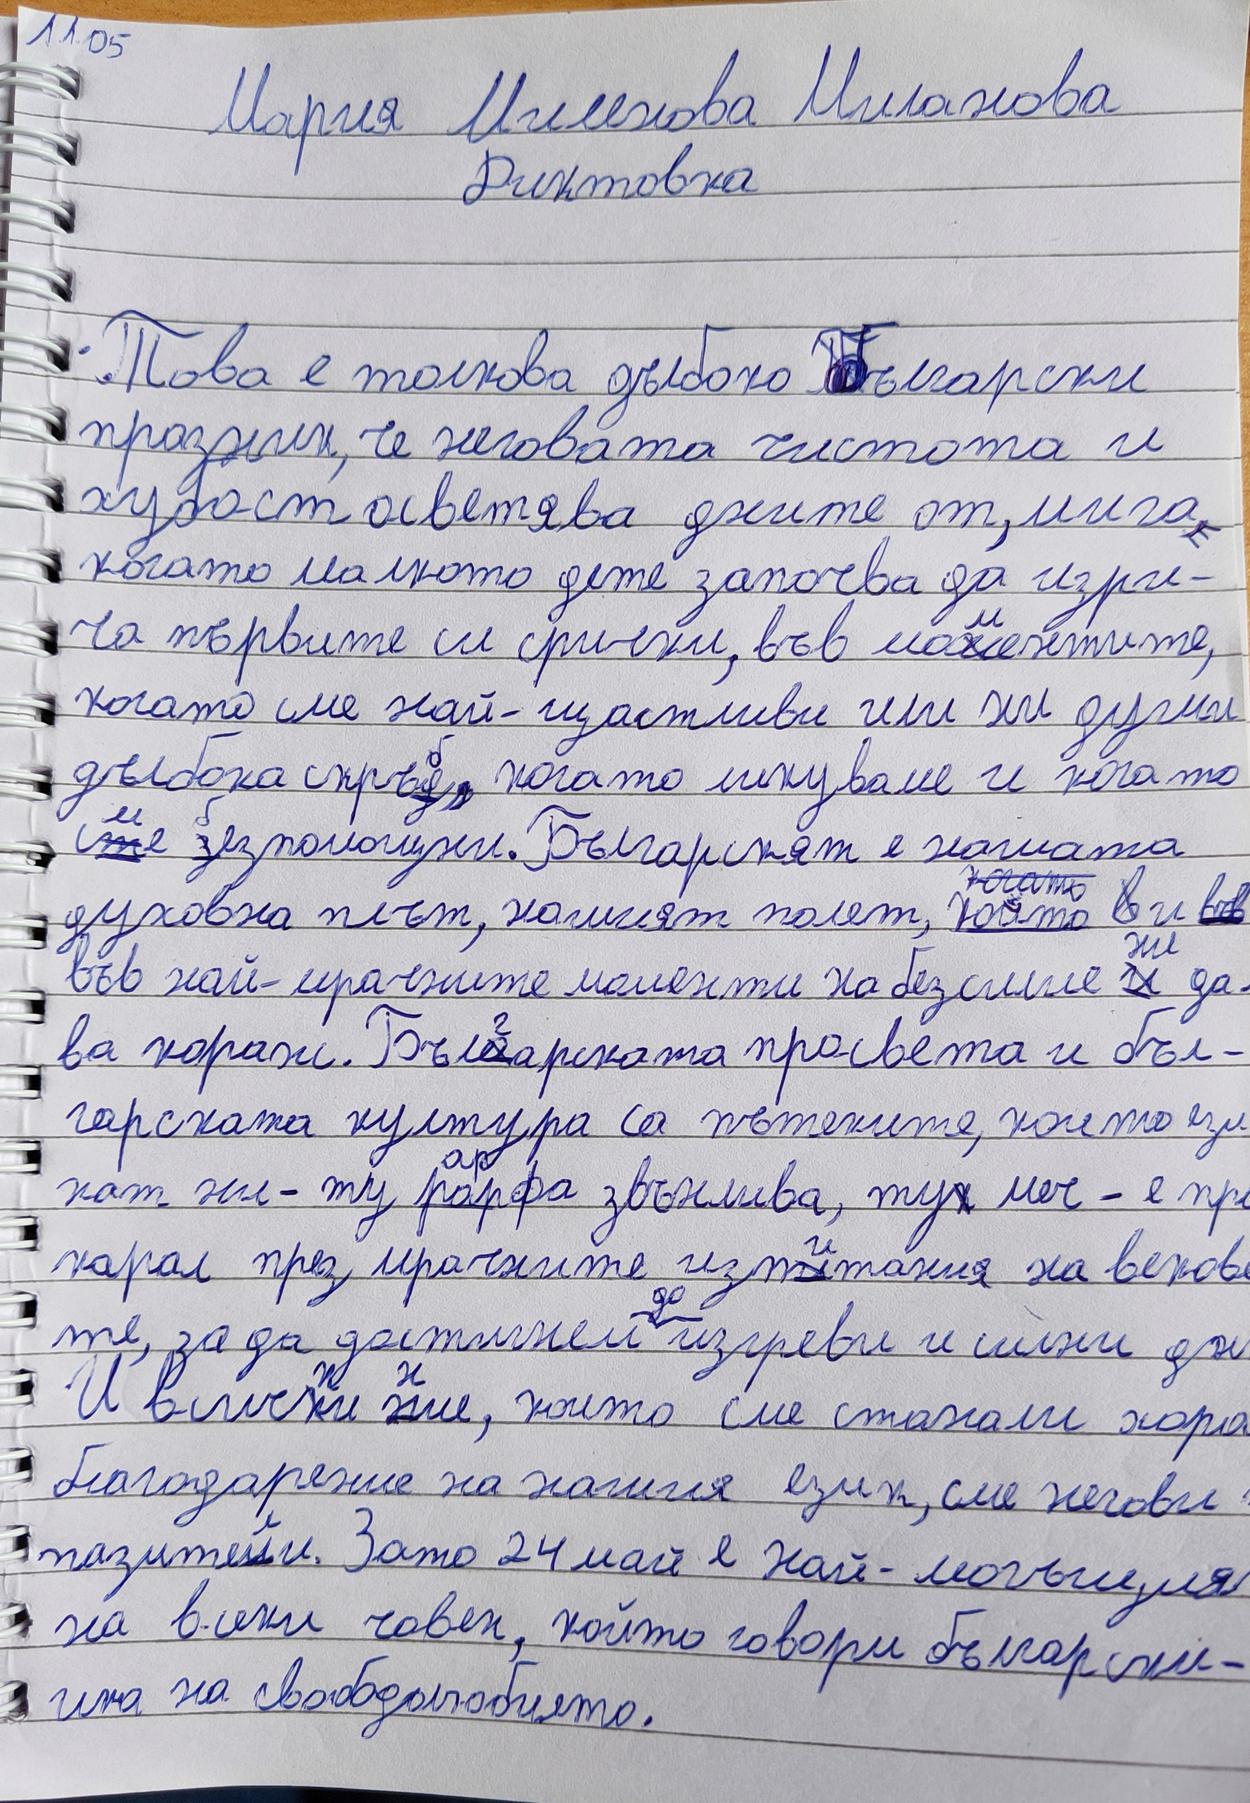 11.05
Мария Миленова Миланова
Диктовка
Това е толкова дълбоко български
празник, че неговата чистота и
хубост осветява дните от, мига,
когато малкото дете започва да изри-
ча първите си срички, във моментите,
когато сме най-щастливи или ни души
дълбока скръб, когато ликуваме и когато
сме безпомощни. Българският е нашата
духовна плът, нашият полет, който и
във най-мрачните моменти на безсилие ни да-
ва кураж. Българската просвета и бъл-
гарската култура са пътеките, които
кат ни - ту арфа звънлива, ту меч - е пре
карал през мрачните изпитания на векове
те, за да достигнем до изгреви и силни дн
И всички ние, които сме станали хора
благодарение на нашия език, сме негови
пазители. Зато 24 май е най-могъщия
на всеки човек, който говори български-
ика на свободолюбието.